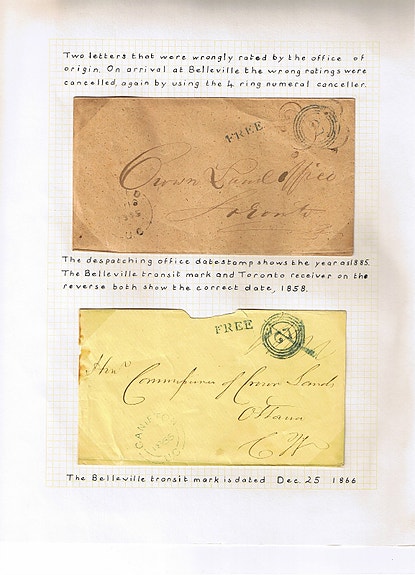 Two letters that were wrongly rated by the office of
origin. On arrival at Belleville the wrong ratings were
cancelled, again by using the 4 ring numeral canceller.
FREE
Crown Land Office
Toronto
The despatching office datestamp shows the year as 1885.
The Belleville transit mark and Toronto receiver on the
reverse both show the correct date, 1858.
FREE
Honr
Commissioner of Crown Lands
Ottawa
C W
The Belleville transit mark is dated Dec. 25 1866